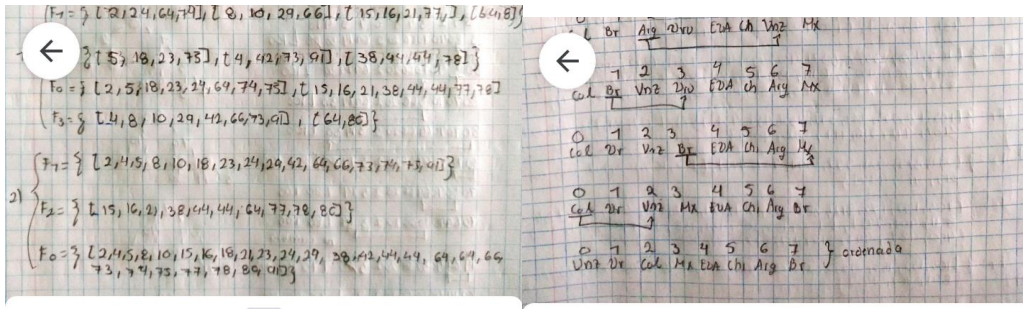 F1 = { [2,24,64,74], [8,10,29,66], [15,16,21,77,], [64,8]}
{[5,18,23,75], [4,42,73,91], [38,44,44,78]}
F0 = { [2,5,18,23,24,64,74,75], [15,16,21,38,44,44,77,78]
F3 = { [4,8,10,29,42,66,73,91], [64,80]}
2)
F1 = { [2,4,5,8,10,18,23,24,29,42,64,66,73,74,75,91]}
F2 = { [15,16,21,38,44,44,64,77,78,80]}
F0 = { [2,4,5,8,10,15,16,18,21,23,24,29,38,42,44,44,64,64,66
73,74,75,77,78,80,91]}
Br Arg EUA Ch Vnz Mx
1 2 3 4 5 6 7
Col Br Vnz EUA Ch Arg Mx
0 1 2 3 4 5 6 7
Col Vnz Br EUA Ch Arg Mx
0 1 2 3 4 5 6 7
Col Vnz Mx EUA Ch Arg Br
0 1 2 3 4 5 6 7 } ordenada
Vnz Col Mx EUA Ch Arg Br